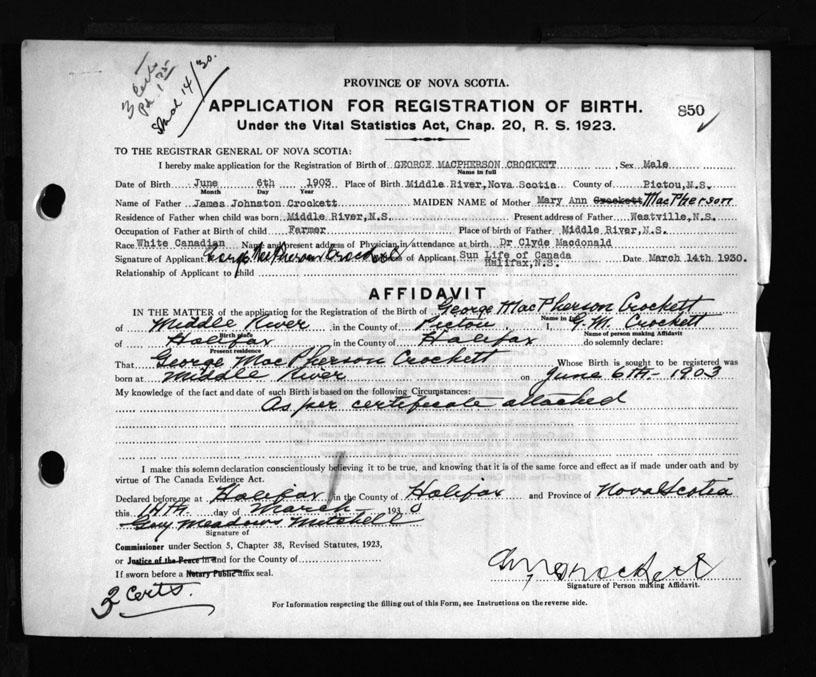 3 Certs
Pd. 1.25
Mch 14/30.
PROVINCE OF NOVA SCOTIA.
APPLICATION FOR REGISTRATION OF BIRTH.
850
Under the Vital Statistics Act, Chap. 20, R. S. 1923.
TO THE REGISTRAR GENERAL OF NOVA SCOTIA:
I hereby make application for the Registration of Birth of GEORGE MACPHERSON CROCKETT Sex Male
Name in full
Date of Birth June 6th 1903 Place of Birth Middle River, Nova Scotia County of Pictou, N.S.
Month Day Year
Name of Father James Johnston Crockett MAIDEN NAME of Mother Mary Ann Crockett MacPherson
Residence of Father when child was born Middle River, N.S. Present address of Father Westville, N.S.
Occupation of Father at Birth of child Farmer Place of birth of Father Middle River, N.S.
Race White Canadian Name and present address of Physician in attendance at birth Dr Clyde Macdonald
Signature of Applicant George MacPherson Crockett Address of Applicant Sun Life of Canada Halifax, N.S. Date March 14th 1930.
Relationship of Applicant to child
AFFIDAVIT
IN THE MATTER of the application for the Registration of the Birth of George MacPherson Crockett
Name in full
of Middle River in the County of Pictou I, G. M. Crockett
Birth place Name of person making Affidavit
of Halifax in the County of Halifax do solemnly declare:
Present residence
That George MacPherson Crockett Whose Birth is sought to be registered was
born at Middle River on June 6th - 1903
My knowledge of the fact and date of such Birth is based on the following Circumstances:
As per certificate attached
I make this solemn declaration conscientiously believing it to be true, and knowing that it is of the same force and effect as if made under oath and by
virtue of The Canada Evidence Act.
Declared before me at Halifax in the County of Halifax and Province of Nova Scotia
this 14th. day of March 1930
Guy Meadows Mitchell
Signature of
Commissioner under Section 5, Chapter 38, Revised Statutes, 1923,
or Justice of the Peace in and for the County of
If sworn before a Notary Public affix seal.
G M Crockett
Signature of Person making Affidavit.
3 Certs.
For Information respecting the filling out of this Form, see Instructions on the reverse side.